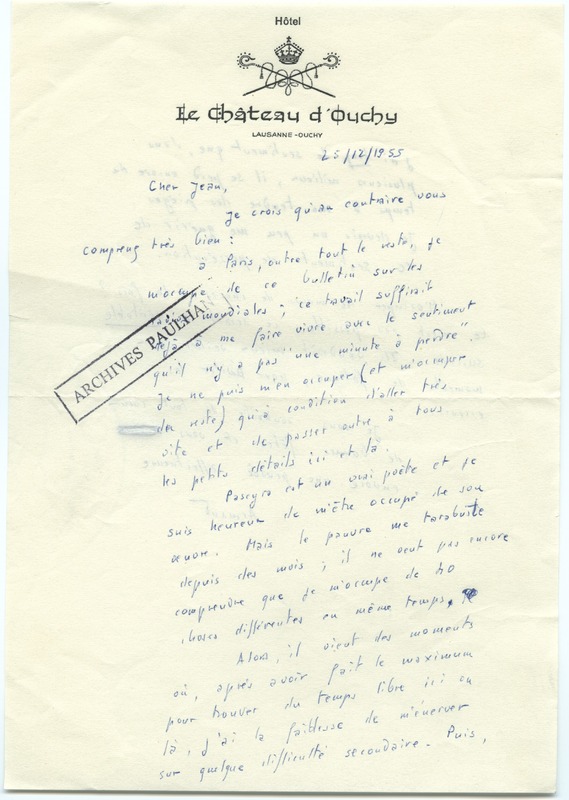 Hôtel
Le Château d'Ouchy
LAUSANNE-OUCHY
25/12/1955
Cher Jean,
Je crois qu'au contraire vous
comprenez très bien :
à Paris, outre tout le reste, je
m'occupe de ce bulletin sur les
mondiales ; ce travail suffirait
déjà à me faire vivre avec le sentiment
qu'il n'y a pas "une minute à perdre".
Je ne puis m'en occuper (et m'occuper
du reste) qu'à condition d'aller très
vite et de passer outre à tous
les petits détails ici et là.
ARCHIVES PAULHAN
Passyra est un vrai poète et je
suis heureux de m'être occupé de son
œuvre. Mais le pauvre me tarabuste
depuis des mois ; il ne veut pas encore
comprendre que je m'occupe de 40
choses différentes en même temps,
Alors, il vient des moments
où, après avoir fait le maximum
pour trouver du temps libre ici ou
là, j'ai la faiblesse de m'énerver
sur quelque difficulté secondaire. Puis,